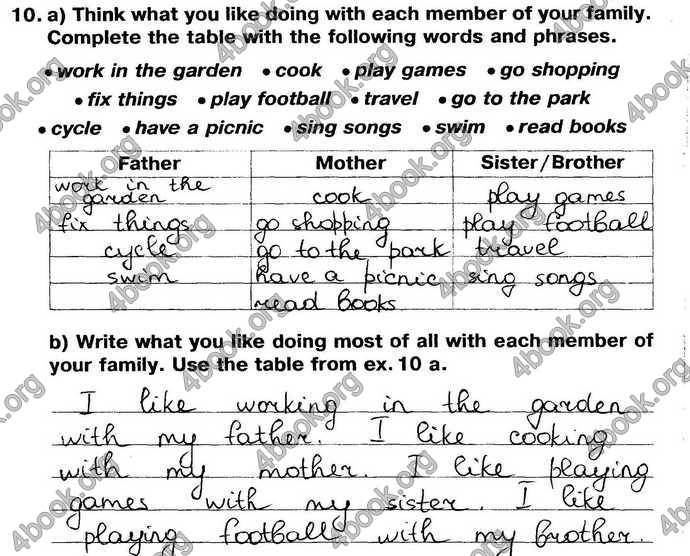 10. a) Think what you like doing with each member of your family.
Complete the table with the following words and phrases.
• work in the garden • cook • play games • go shopping
• fix things • play football • travel • go to the park
• cycle • have a picnic • sing songs • swim • read books
Father Mother Sister/Brother
work in the
garden cook play games
fix things go shopping play football
cycle go to the park travel
swim have a picnic sing songs
read books
b) Write what you like doing most of all with each member of
your family. Use the table from ex. 10 a.
I like working in the garden
with my father. I like cooking
with my mother. I like playing
games with my sister. I like
playing football with my brother.
4book.org